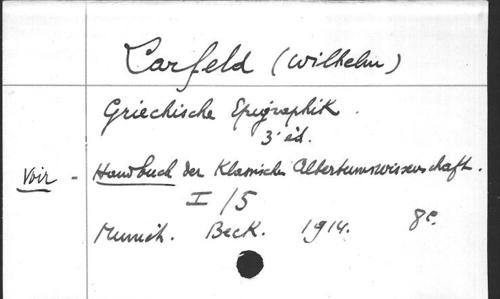 Larfeld (Wilhelm)
Griechische Epigraphik.
3e éd.
Voir - Handbuch der Klassischen Altertumswissenschaft.
I/5
Munich. Beck. 1914. 8e.